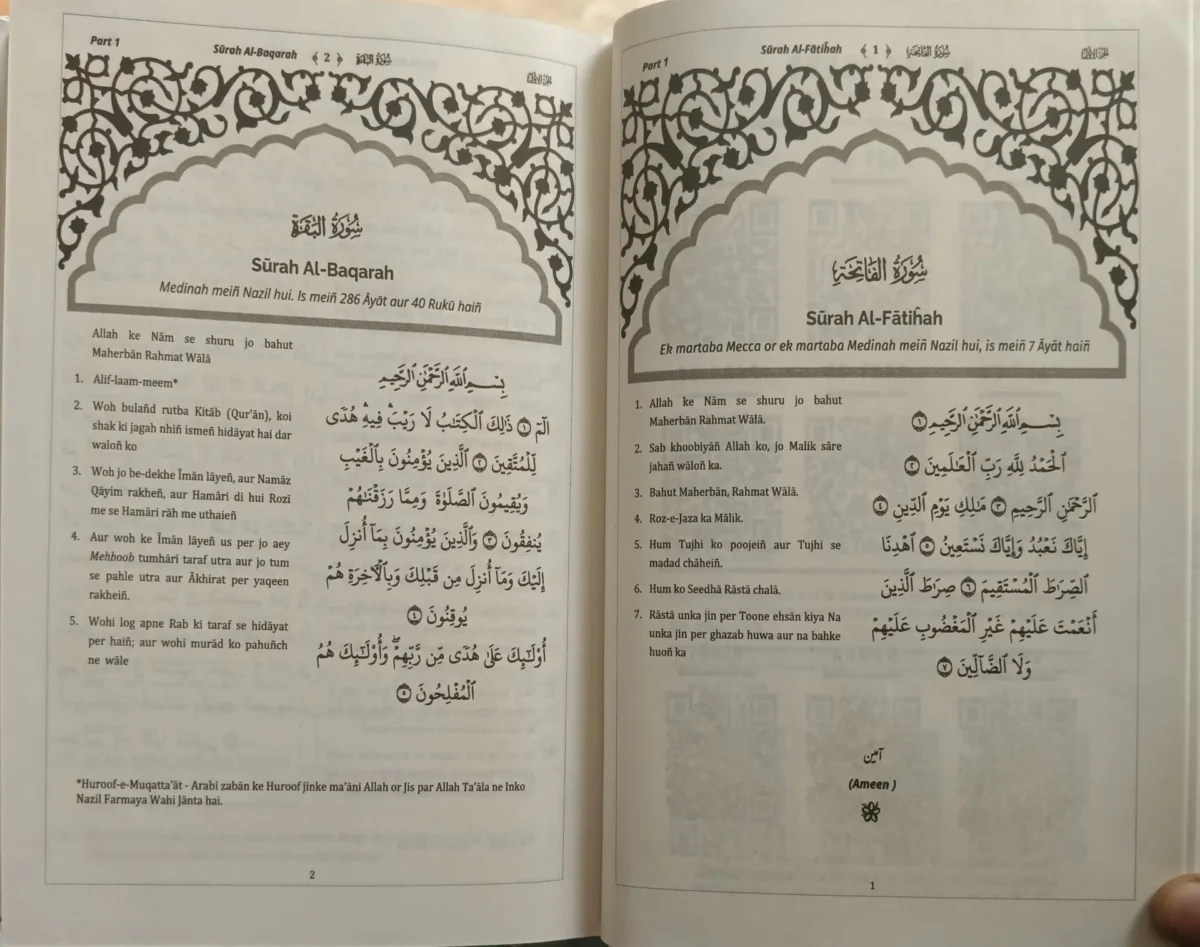 Part 1
Sūrah Al-Fātiĥah ﴾ 1 ﴿ سُورَةُ الفَاتِحَة
سُورَةُ الفَاتِحَة
Sūrah Al-Fātiĥah
Ek martaba Mecca or ek martaba Medinah meiñ Nazil hui, is meiñ 7 Āyāt haiñ
1. Allah ke Nām se shuru jo bahut
Maherbān Rahmat Wālā.
2. Sab khoobiyāñ Allah ko, jo Malik sāre
jahañ wāloñ ka.
3. Bahut Maherbān, Rahmat Wālā.
4. Roz-e-Jaza ka Mālik.
5. Hum Tujhi ko poojeiñ aur Tujhi se
madad chāheiñ.
6. Hum ko Seedhā Rāstā chalā.
7. Rāstā unka jin per Toone ehsān kiya Na
unka jin per ghazab huwa aur na bahke
huoñ ka
بِسۡمِ اللهِ الرَّحۡمٰنِ الرَّحِيۡمِ ۝١
اَلۡحَمۡدُ لِلّٰهِ رَبِّ الۡعٰلَمِيۡنَ ۝٢
الرَّحۡمٰنِ الرَّحِيۡمِ ۝٣ مٰلِكِ يَوۡمِ الدِّيۡنِ ۝٤
إِيَّاكَ نَعۡبُدُ وَإِيَّاكَ نَسۡتَعِيۡنُ ۝٥ اهۡدِنَا
الصِّرَاطَ الۡمُسۡتَقِيۡمَ ۝٦ صِرَاطَ الَّذِيۡنَ
أَنۡعَمۡتَ عَلَيۡهِمۡ غَيۡرِ الۡمَغۡضُوۡبِ عَلَيۡهِمۡ
وَلَا الضَّآلِّيۡنَ ۝٧
آمین
(Ameen )
1
Part 1
Sūrah Al-Baqarah ﴾ 2 ﴿ سُورَةُ البَقَرَة
سُورَةُ البَقَرَة
Sūrah Al-Baqarah
Medinah meiñ Nazil hui. Is meiñ 286 Āyāt aur 40 Rukū haiñ
Allah ke Nām se shuru jo bahut
Maherbān Rahmat Wālā
1. Alif-laam-meem*
2. Woh bulañd rutba Kitāb (Qur'ān), koi
shak ki jagah nhiñ ismeñ hidāyat hai dar
waloñ ko
3. Woh jo be-dekhe Īmān lāyeñ, aur Namāz
Qāyim rakheñ, aur Hamāri di hui Rozī
me se Hamāri rāh me uthaieñ
4. Aur woh ke Īmān lāyeñ us per jo aey
Mehboob tumhāri taraf utra aur jo tum
se pahle utra aur Ākhirat per yaqeen
rakheiñ.
5. Wohi log apne Rab ki taraf se hidāyat
per haiñ; aur wohi murād ko pahuñch
ne wāle
بِسۡمِ اللهِ الرَّحۡمٰنِ الرَّحِيۡمِ
الٓمٓ ۝١ ذٰلِكَ الۡكِتٰبُ لَا رَيۡبَ ۛ فِيۡهِ ۛ هُدًى
لِّلۡمُتَّقِيۡنَ ۝٢ الَّذِيۡنَ يُؤۡمِنُوۡنَ بِالۡغَيۡبِ
وَيُقِيۡمُوۡنَ الصَّلٰوةَ وَمِمَّا رَزَقۡنٰهُمۡ
يُنۡفِقُوۡنَ ۝٣ وَالَّذِيۡنَ يُؤۡمِنُوۡنَ بِمَآ أُنۡزِلَ
إِلَيۡكَ وَمَآ أُنۡزِلَ مِنۡ قَبۡلِكَ وَبِالۡأٰخِرَةِ هُمۡ
يُوۡقِنُوۡنَ ۝٤
أُولٰٓئِكَ عَلٰى هُدًى مِّنۡ رَّبِّهِمۡ ۖ وَأُولٰٓئِكَ هُمُ
الۡمُفۡلِحُوۡنَ ۝٥
*Huroof-e-Muqatta'āt - Arabi zabān ke Huroof jinke ma'āni Allah or Jis par Allah Ta'āla ne Inko
Nazil Farmaya Wahi Jānta hai.
2